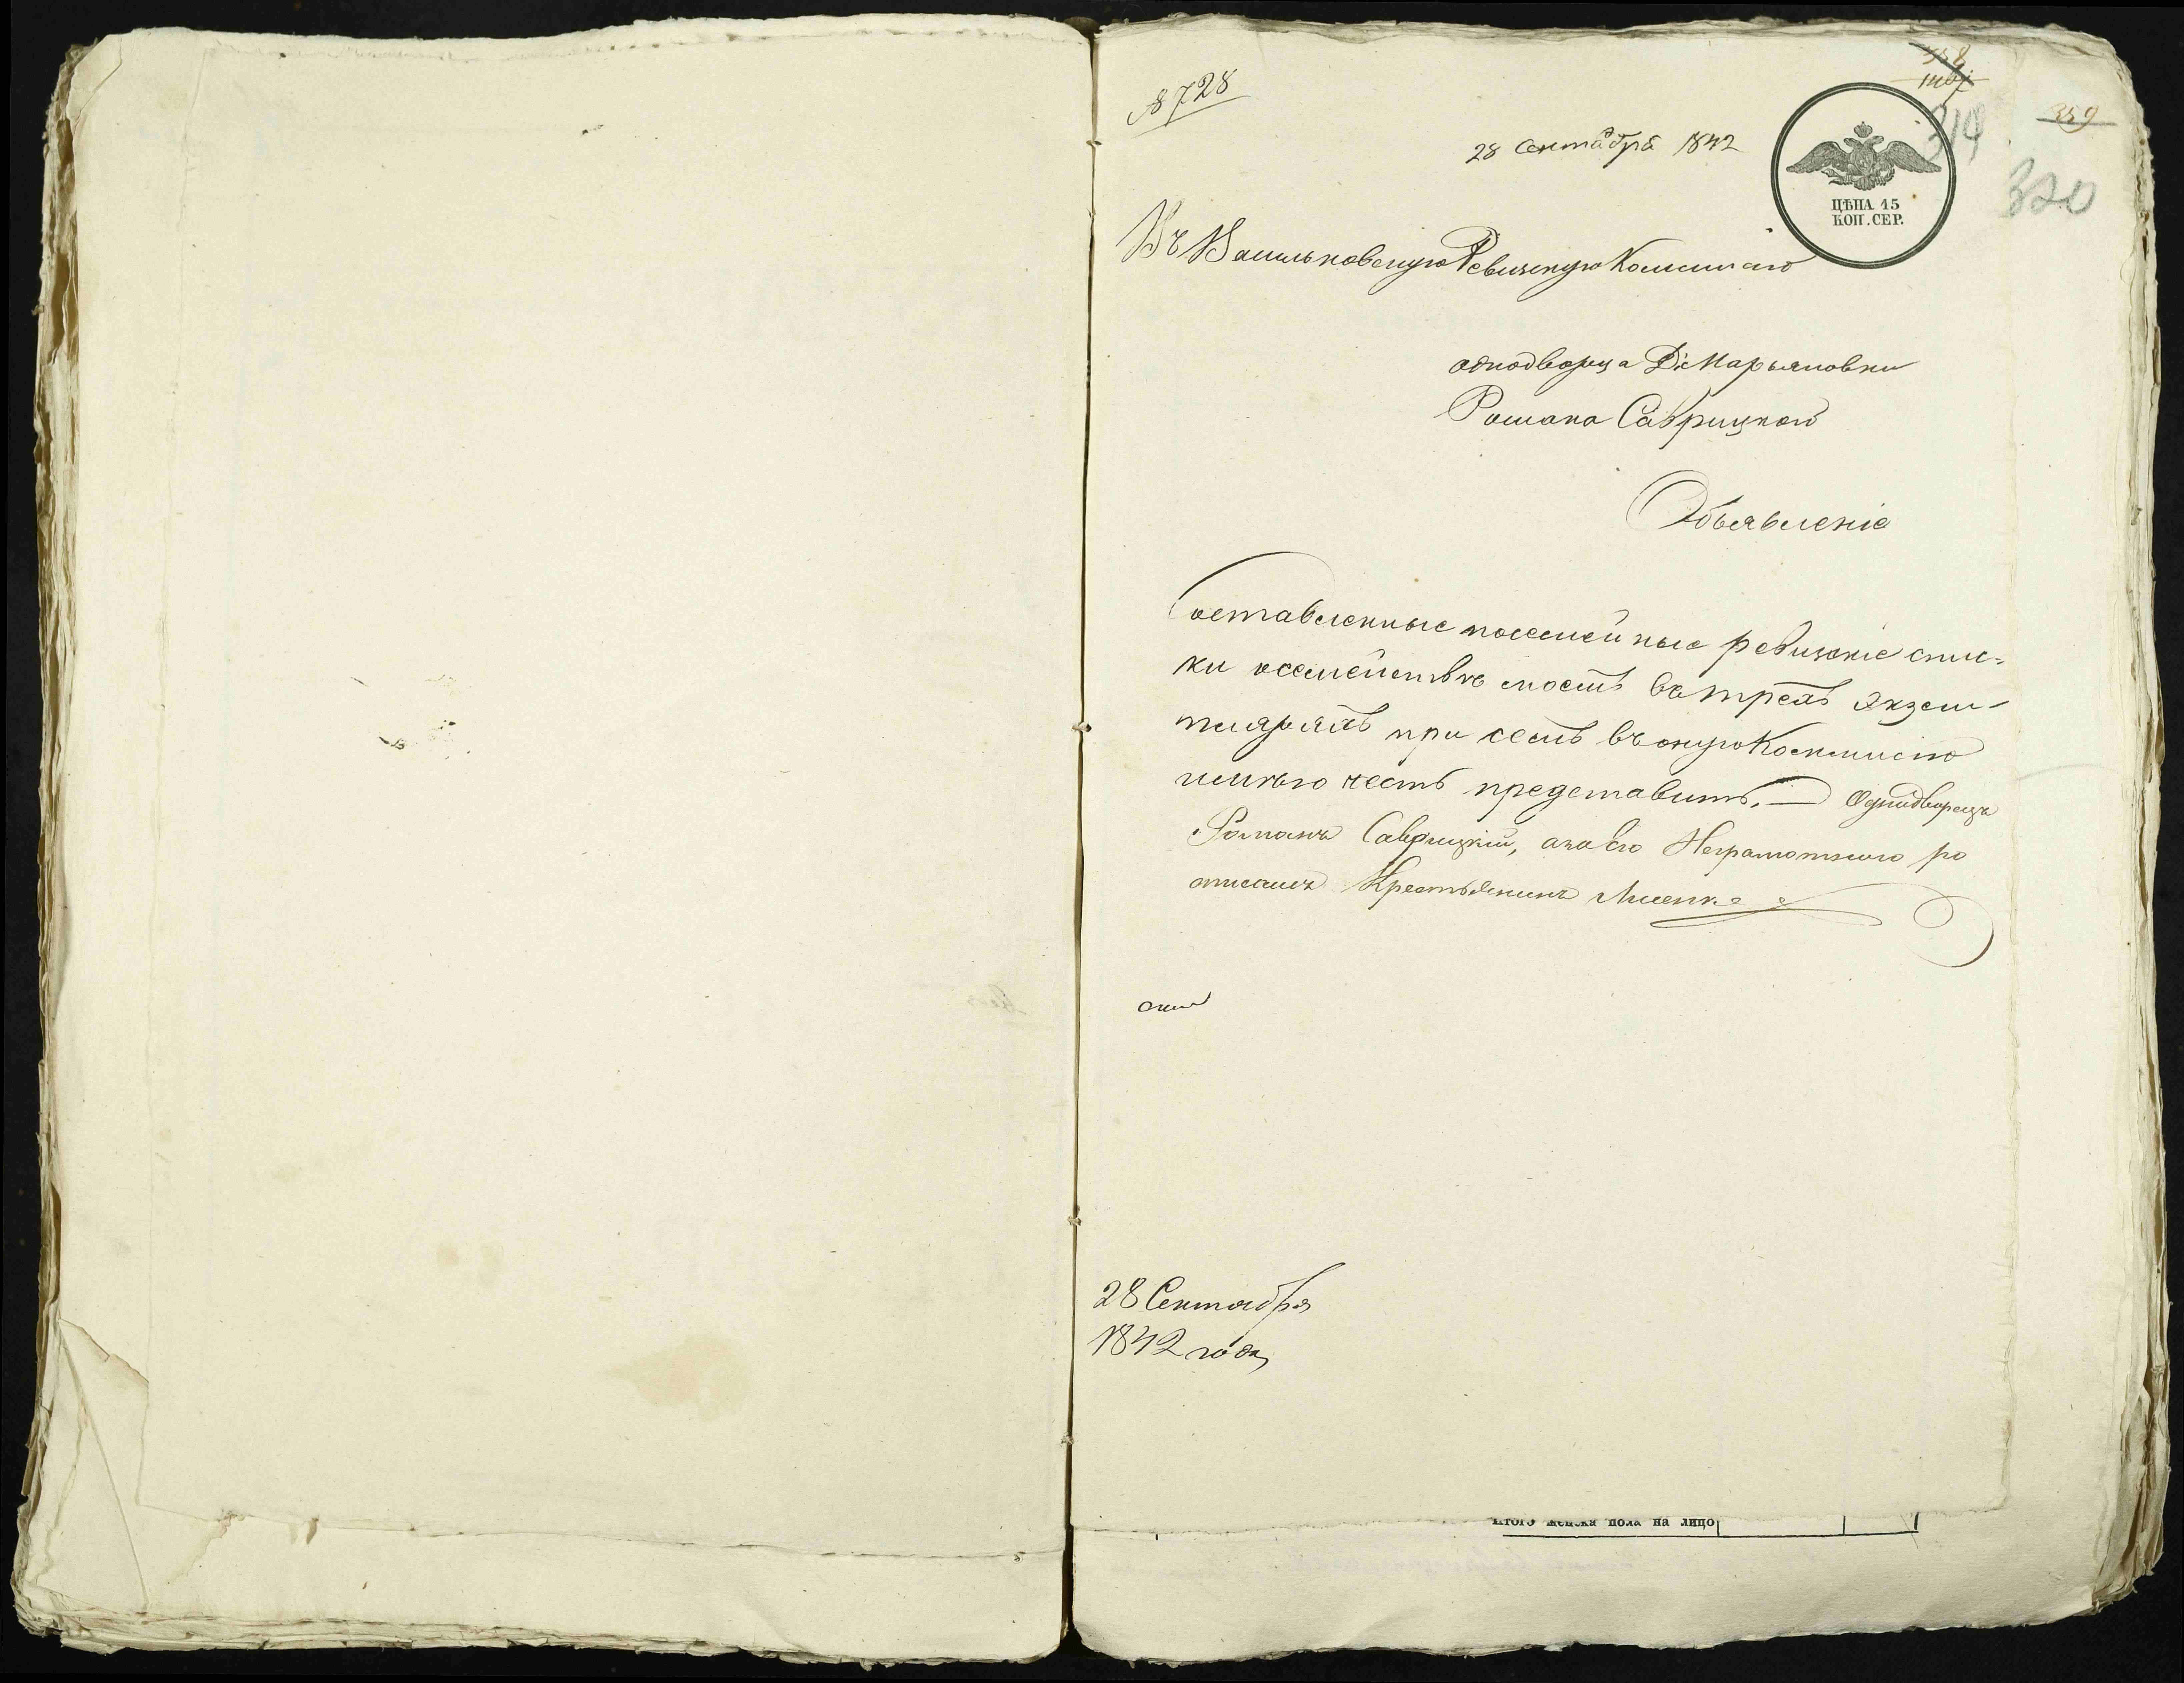 8728
28 Сентября 1842
359
319
320
ЦѢНА 15
КОП. СЕР.
Въ Васильковскую Ревизкую Коммисію
однодворца Д. Марьяновки
Романа Саврицкого
Объявленіе
Составленные посемейные ревизкіе спис-
ки о семействѣ моемъ въ трехъ экзем-
плярахъ при семъ въ оную Коммисію
имѣю честь представить. — Однодворецъ
Романъ Саврицкій, а за его Неграмотного ро
описался Крестьянинъ
28 Сентября
1842 года
Итого женска пола на лицо